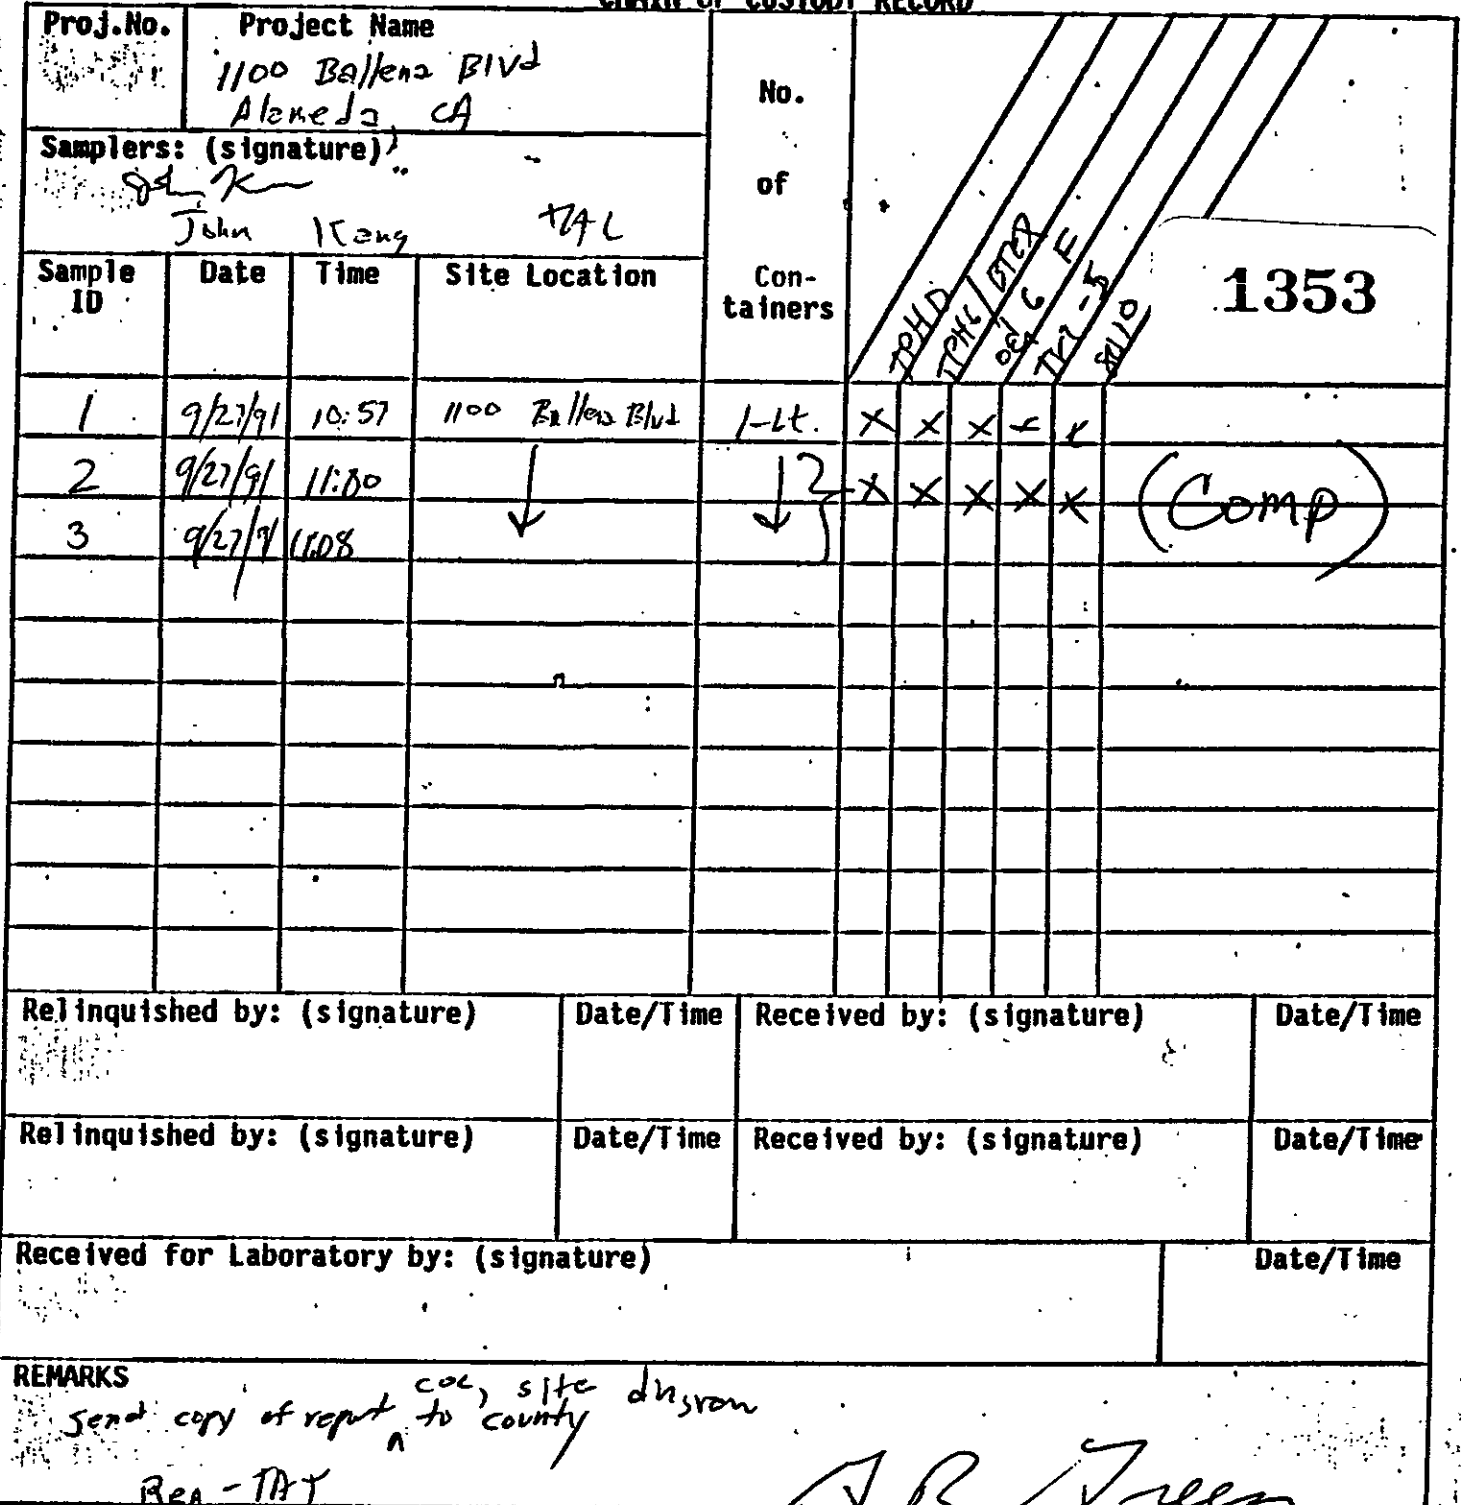 CHAIN OF CUSTODY RECORD
Proj.No. Project Name
1100 Ballena Blvd
Alameda, CA
Samplers: (signature)
John Kang
No. of Con-tainers
Sample ID Date Time Site Location
TPHD TPHG/BTEX O&G 8010
1353
1 9/27/91 10:57 1100 Ballena Blvd 1-Lt. X X X X X
2 9/27/91 11:00 X X X X X (Comp)
3 9/27/91 11:08
Relinquished by: (signature) Date/Time Received by: (signature) Date/Time
Relinquished by: (signature) Date/Time Received by: (signature) Date/Time
Received for Laboratory by: (signature) Date/Time
REMARKS
coc, site
send copy of report ^ to county
Reg - TAT